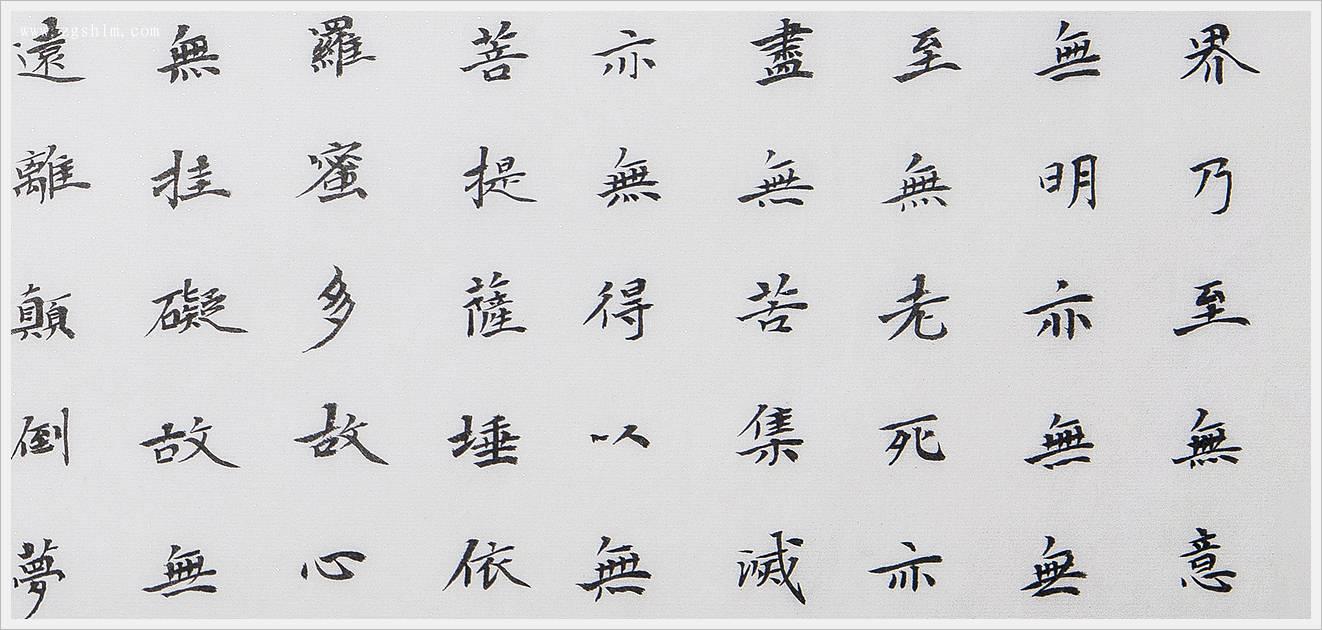 界乃至無意
無明亦無無
至無老死亦
盡無苦集滅
亦無得以無
菩提薩埵依
羅蜜多故心
無挂礙故無
遠離顛倒夢
www.zgshlm.com